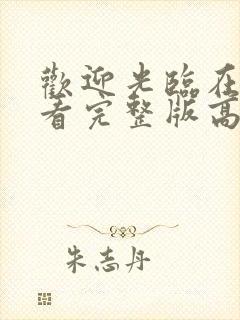 歡迎光臨在
看完整版高
朱志丹